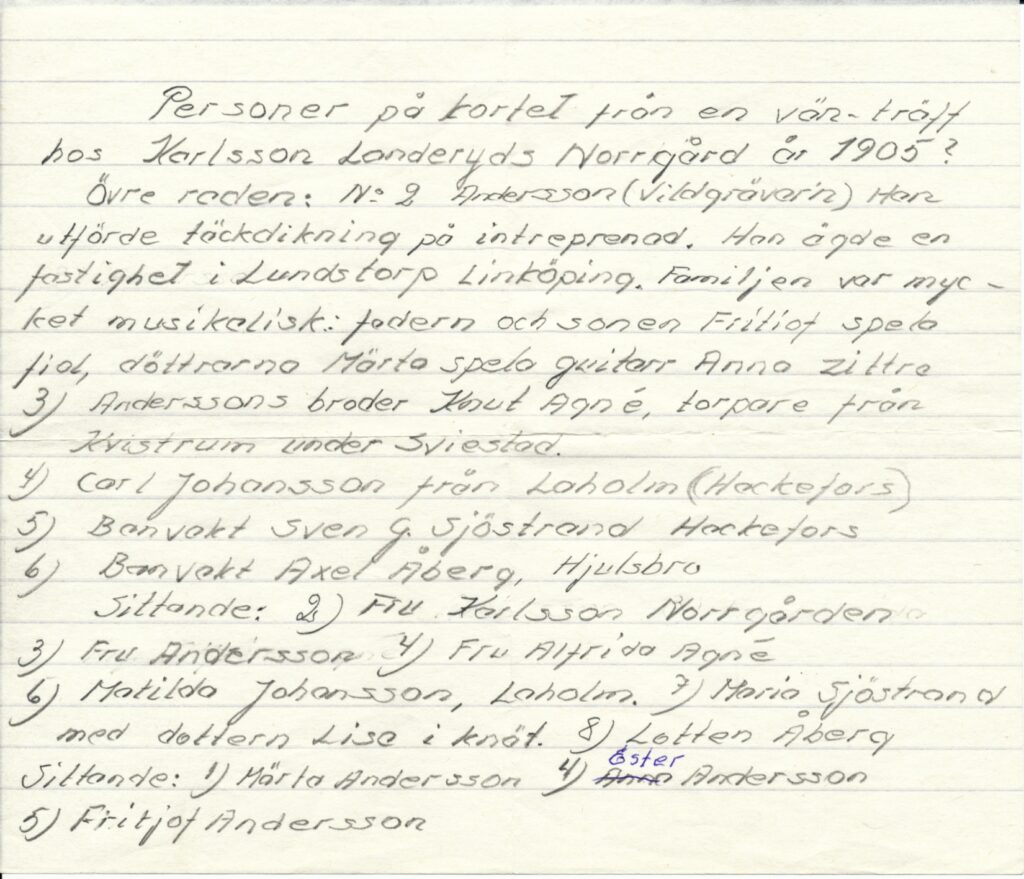 Personer på kortet från en vän-träff
hos Karlsson Landeryds Norrgård år 1905?
Övre raden: No 2 Andersson (Vildgrävar'n) Han
utförde täckdikning på intreprenad. Han ägde en
fastighet i Lundstorp Linköping. Familjen var myc-
ket musikalisk: fadern och sonen Fritiof spela
fiol, döttrarna Märta spela guitarr Anna zittra
3) Anderssons broder Knut Agné, torpare från
Kvistrum under Sviestad.
4) Carl Johansson från Laholm (Hackefors)
5) Banvakt Sven G. Sjöstrand Hackefors
6) Banvakt Axel Åberg, Hjulsbro
Sittande: 2) Fru Karlsson Norrgården
3) Fru Andersson 4) Fru Alfrida Agné
6) Matilda Johansson, Laholm. 7) Maria Sjöstrand
med dottern Lisa i knät. 8) Lotten Åberg
Ester
Sittande: 1) Märta Andersson 4) Anna Andersson
5) Fritjof Andersson